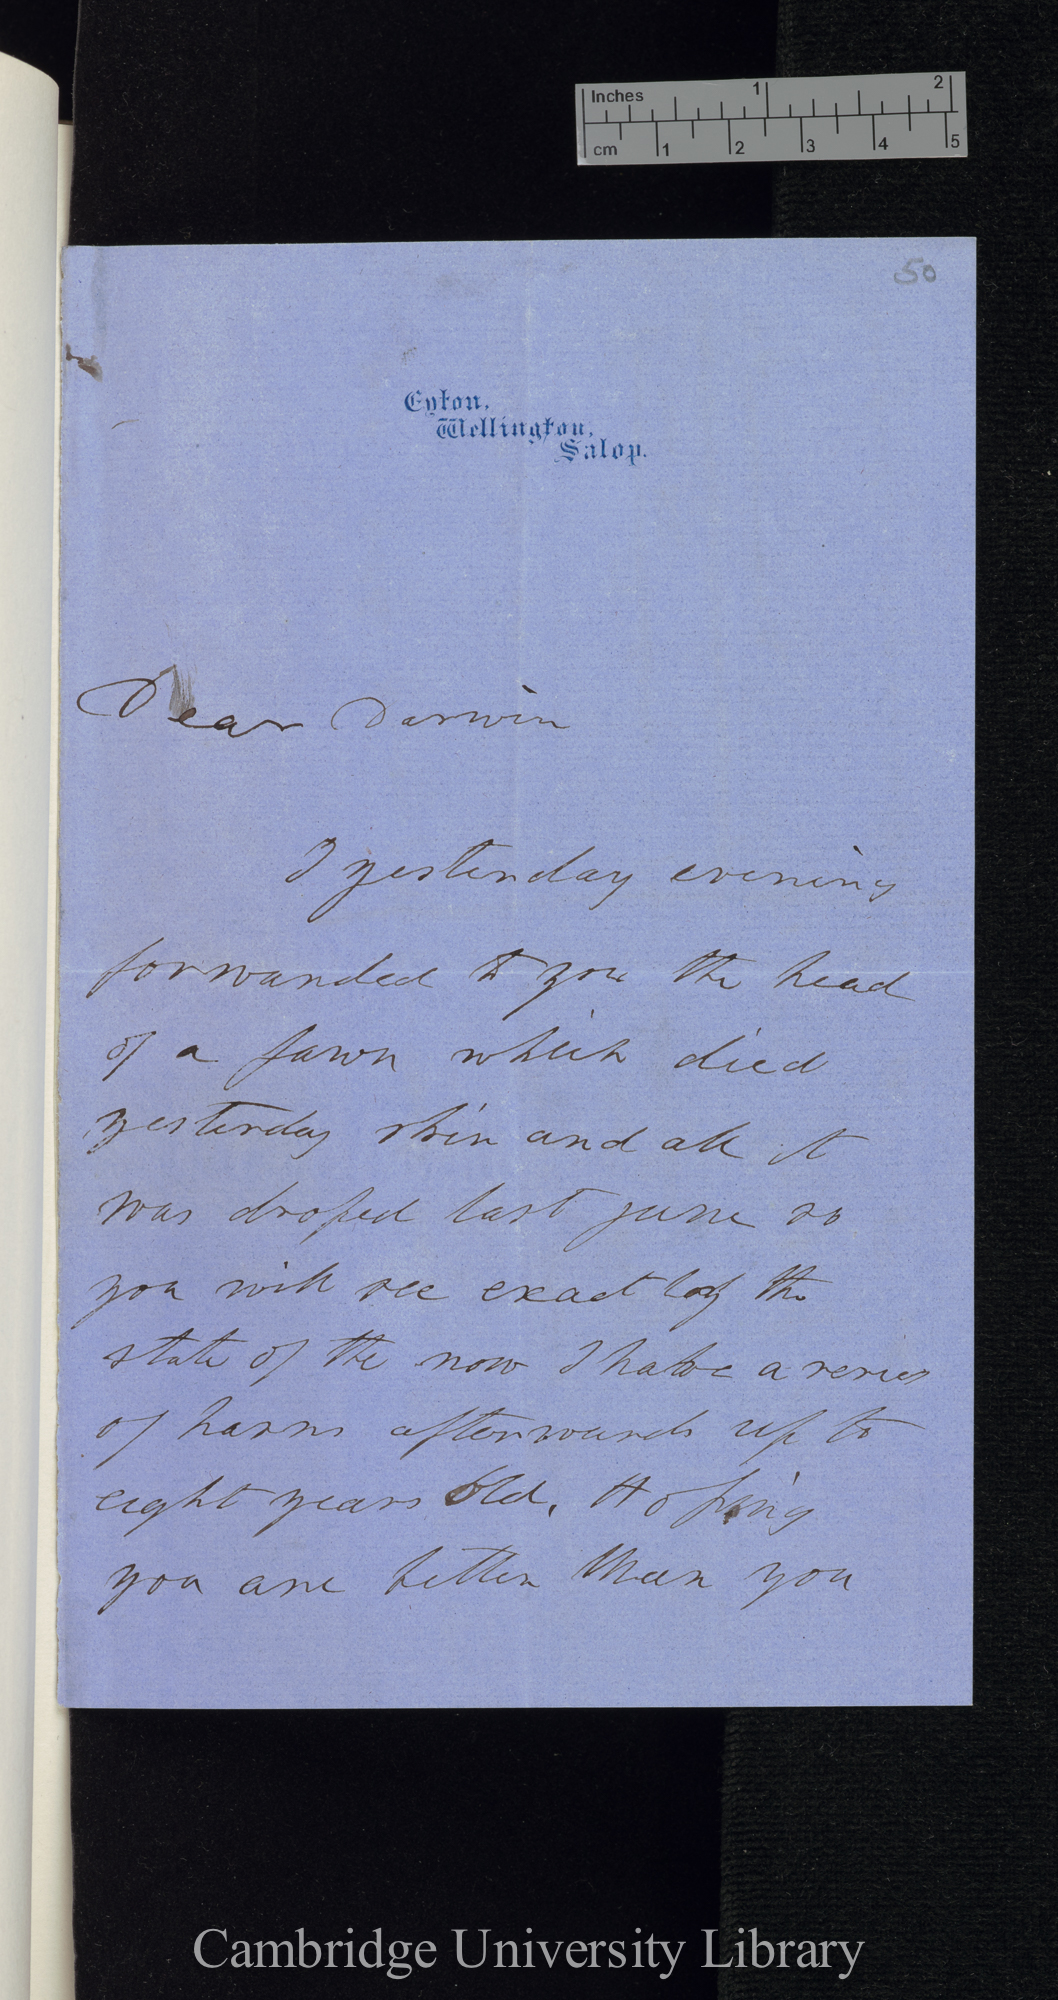 Inches 1 2
cm 1 2 3 4 5
50
Eyton,
Wellington,
Salop.
Dear Darwin
I yesterday evening
forwarded to you the head
of a fawn which died
yesterday skin and all it
was droped last june so
you will see exactly the
state of the now I have a series
of harns afterwards up to
eight years old. Hoping
you are better than you
Cambridge University Library